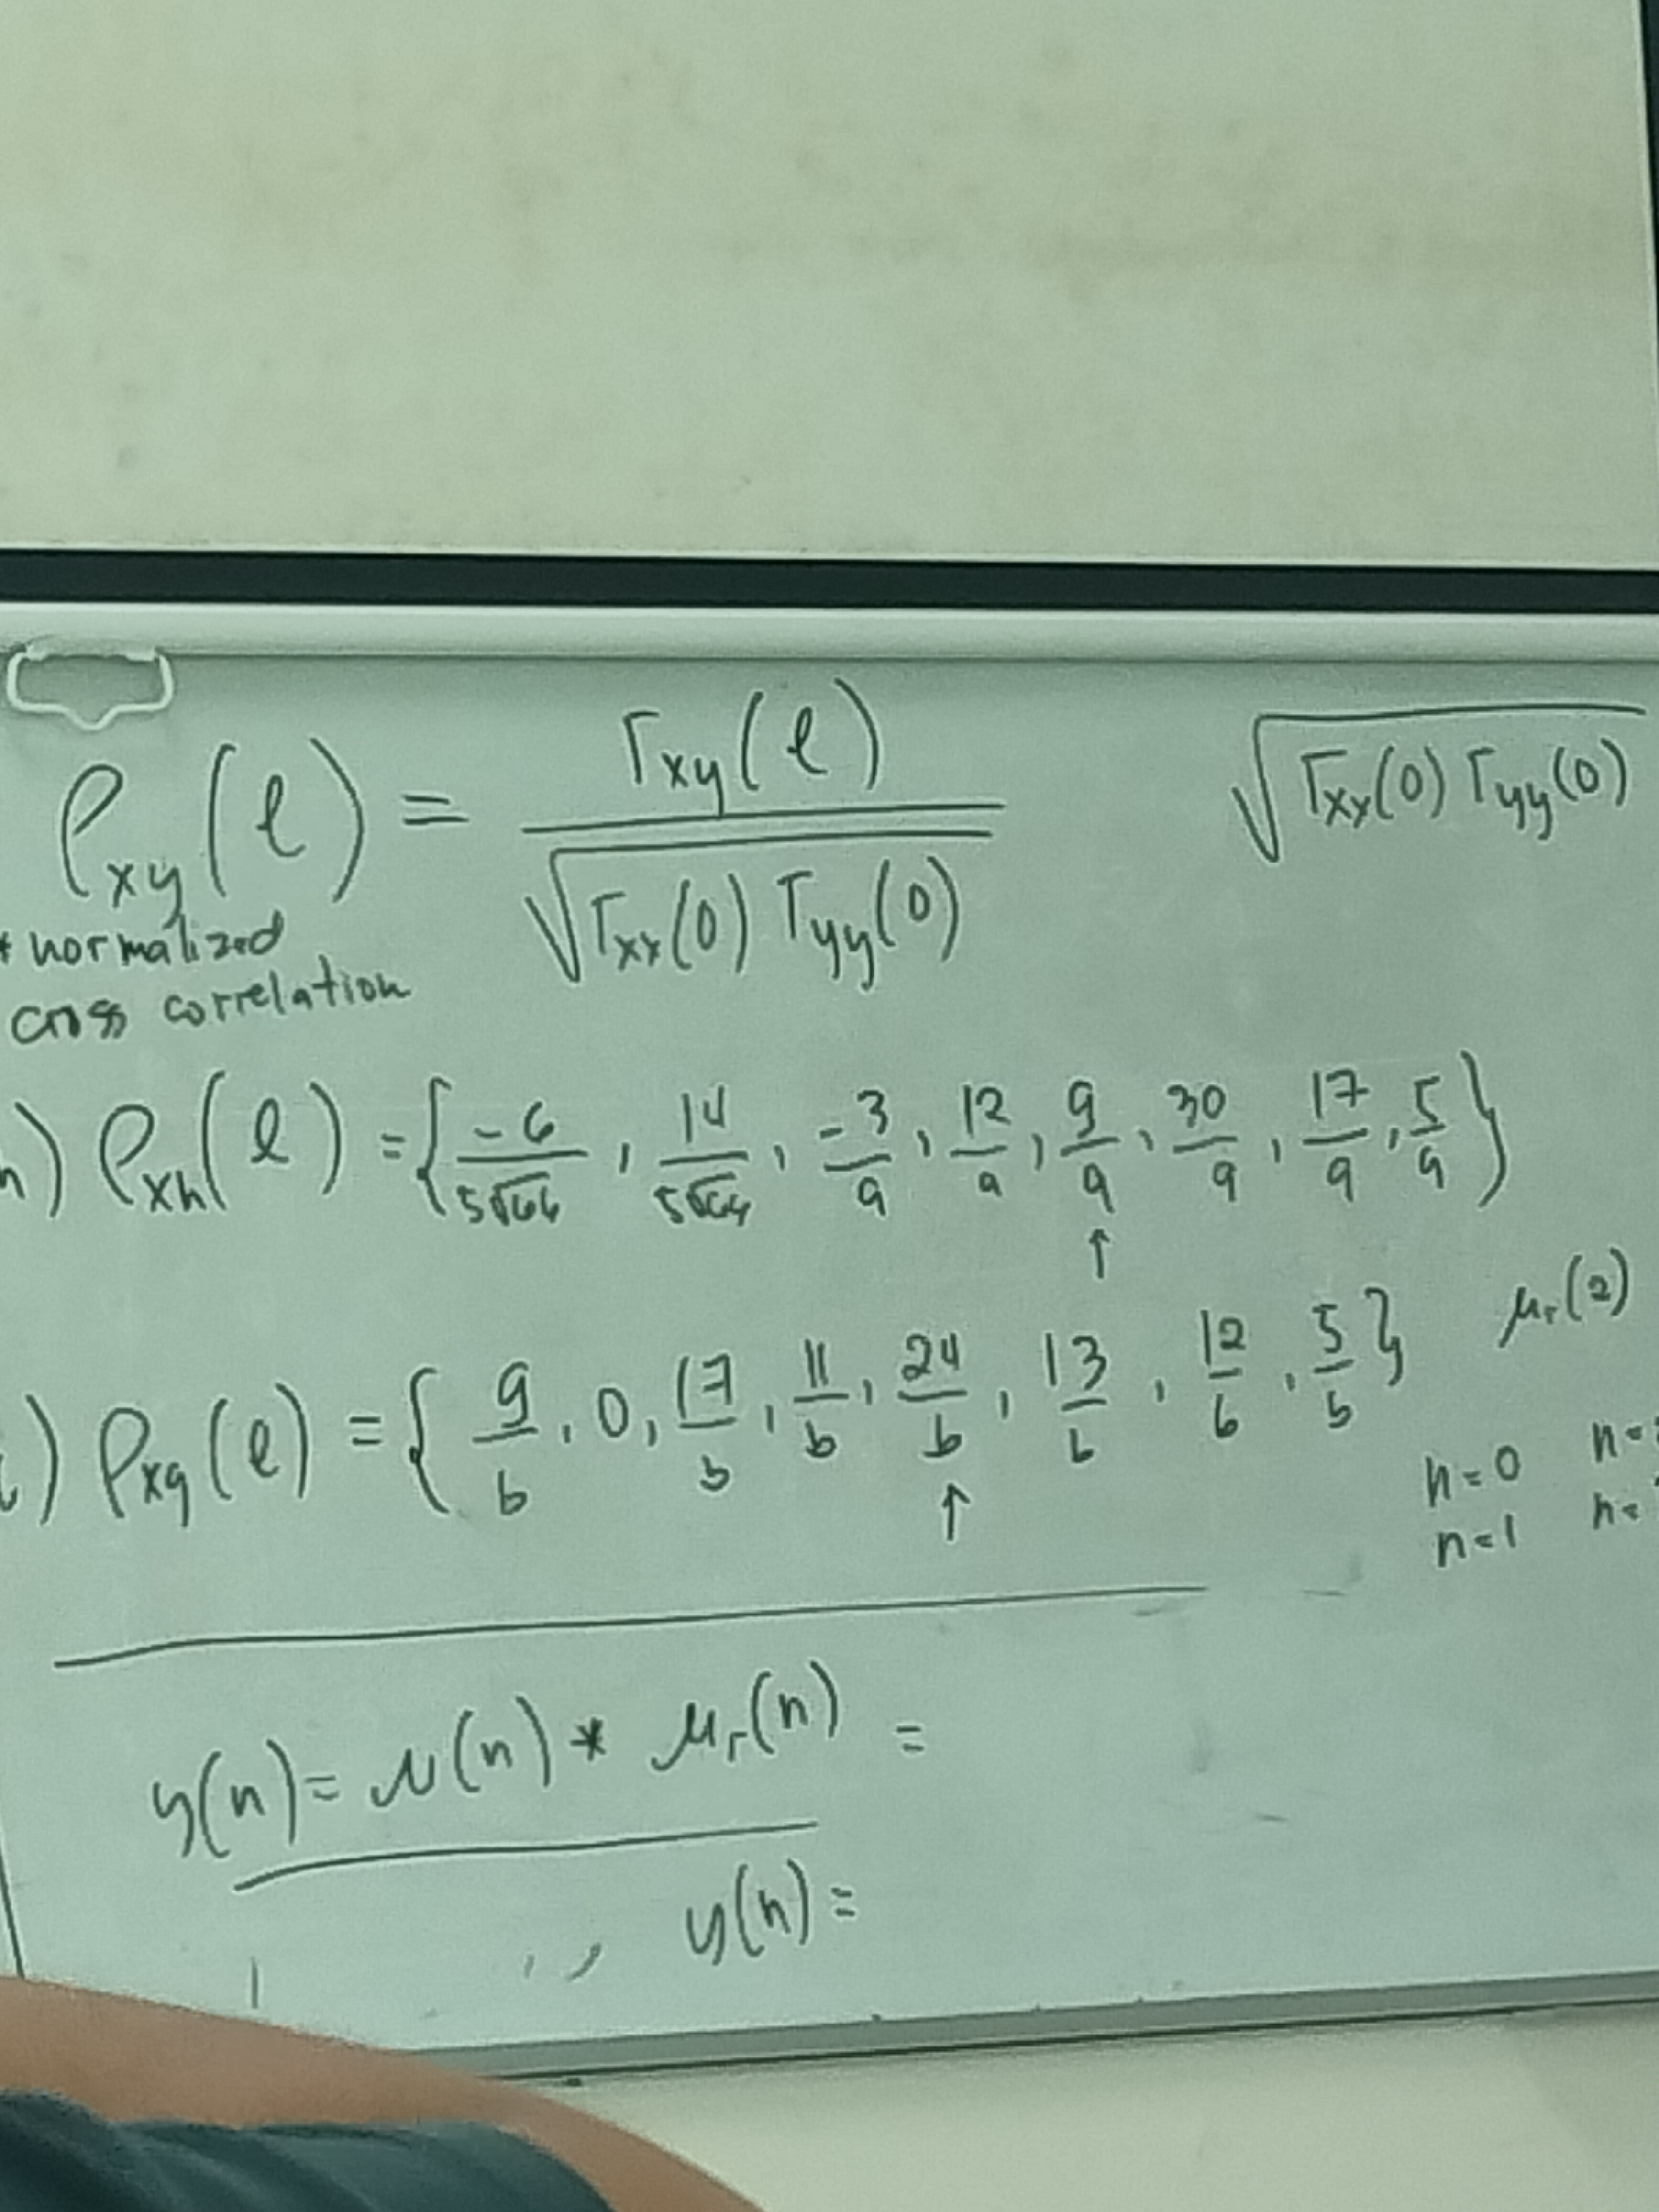 ρxy(ℓ) = rxy(ℓ) / √(rxx(0) ryy(0))    √(rxx(0) ryy(0))
* normalized
cross correlation
) ρxh(ℓ) = { -6/5√66 , 14/5√64 , -3/a , 12/a , 9/a , 30/a , 17/a , 5/a }
↑
) ρxq(ℓ) = { 9/b , 0 , 17/b , 11/b , 24/b , 13/b , 12/b , 5/b }    μr(2)
↑
n=0 n=
n=1 n=
y(n) = μ(n) * μr(n) =
y(n) =